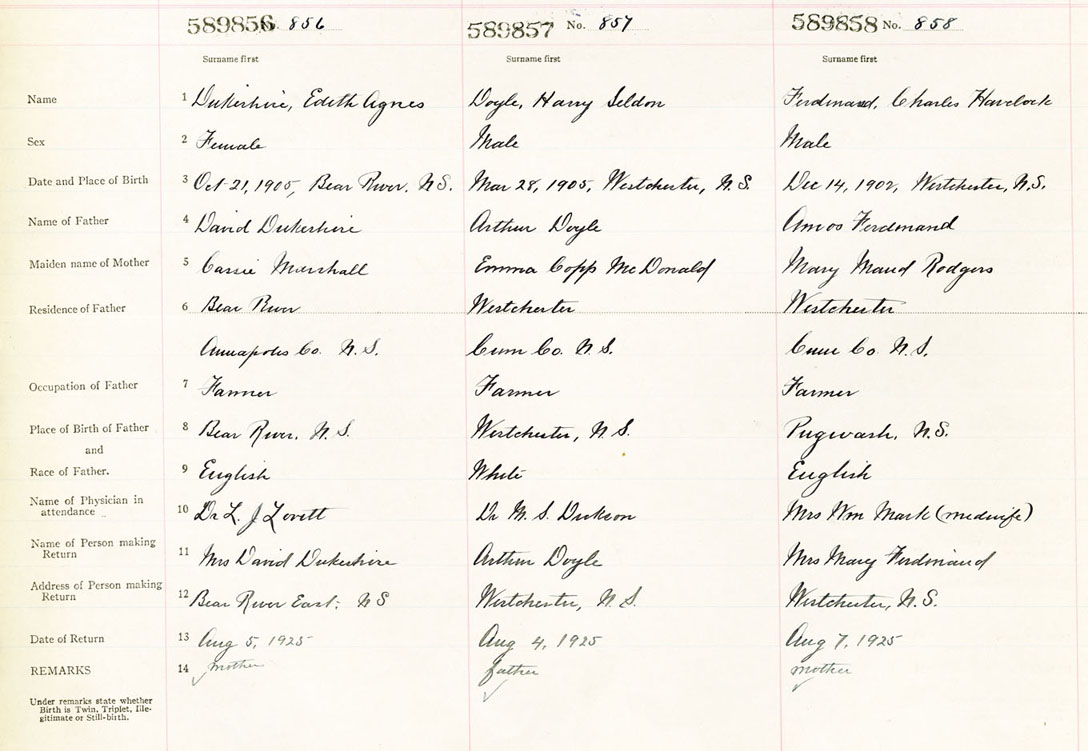 589856 856 589857 No. 857 589858 No. 858
Surname first Surname first Surname first
Name 1 Dukeshire, Edith Agnes Doyle, Harry Seldon Ferdinand, Charles Havelock
Sex 2 Female Male Male
Date and Place of Birth 3 Oct 21, 1905, Bear River, N.S. Mar 28, 1905, Westchester, N.S. Dec 14, 1902, Westchester, N.S.
Name of Father 4 David Dukeshire Arthur Doyle Amos Ferdinand
Maiden name of Mother 5 Cassie Marshall Emma Copp McDonald Mary Maud Rodgers
Residence of Father 6 Bear River Westchester Westchester
Annapolis Co. N.S. Cum Co. N.S. Cum Co N.S.
Occupation of Father 7 Farmer Farmer Farmer
Place of Birth of Father 8 Bear River, N.S. Westchester, N.S. Pugwash, N.S.
and
Race of Father. 9 English White English
Name of Physician in
attendance 10 Dr L. J Lovitt Dr M. S. Dickson Mrs Wm Mark (midwife)
Name of Person making
Return 11 Mrs David Dukeshire Arthur Doyle Mrs Mary Ferdinand
Address of Person making
Return 12 Bear River East, NS Westchester, N.S. Westchester, N.S.
Date of Return 13 Aug 5, 1925 Aug 4, 1925 Aug 7, 1925
REMARKS 14 mother father mother
Under remarks state whether
Birth is Twin, Triplet, Ille-
gitimate or Still-birth.